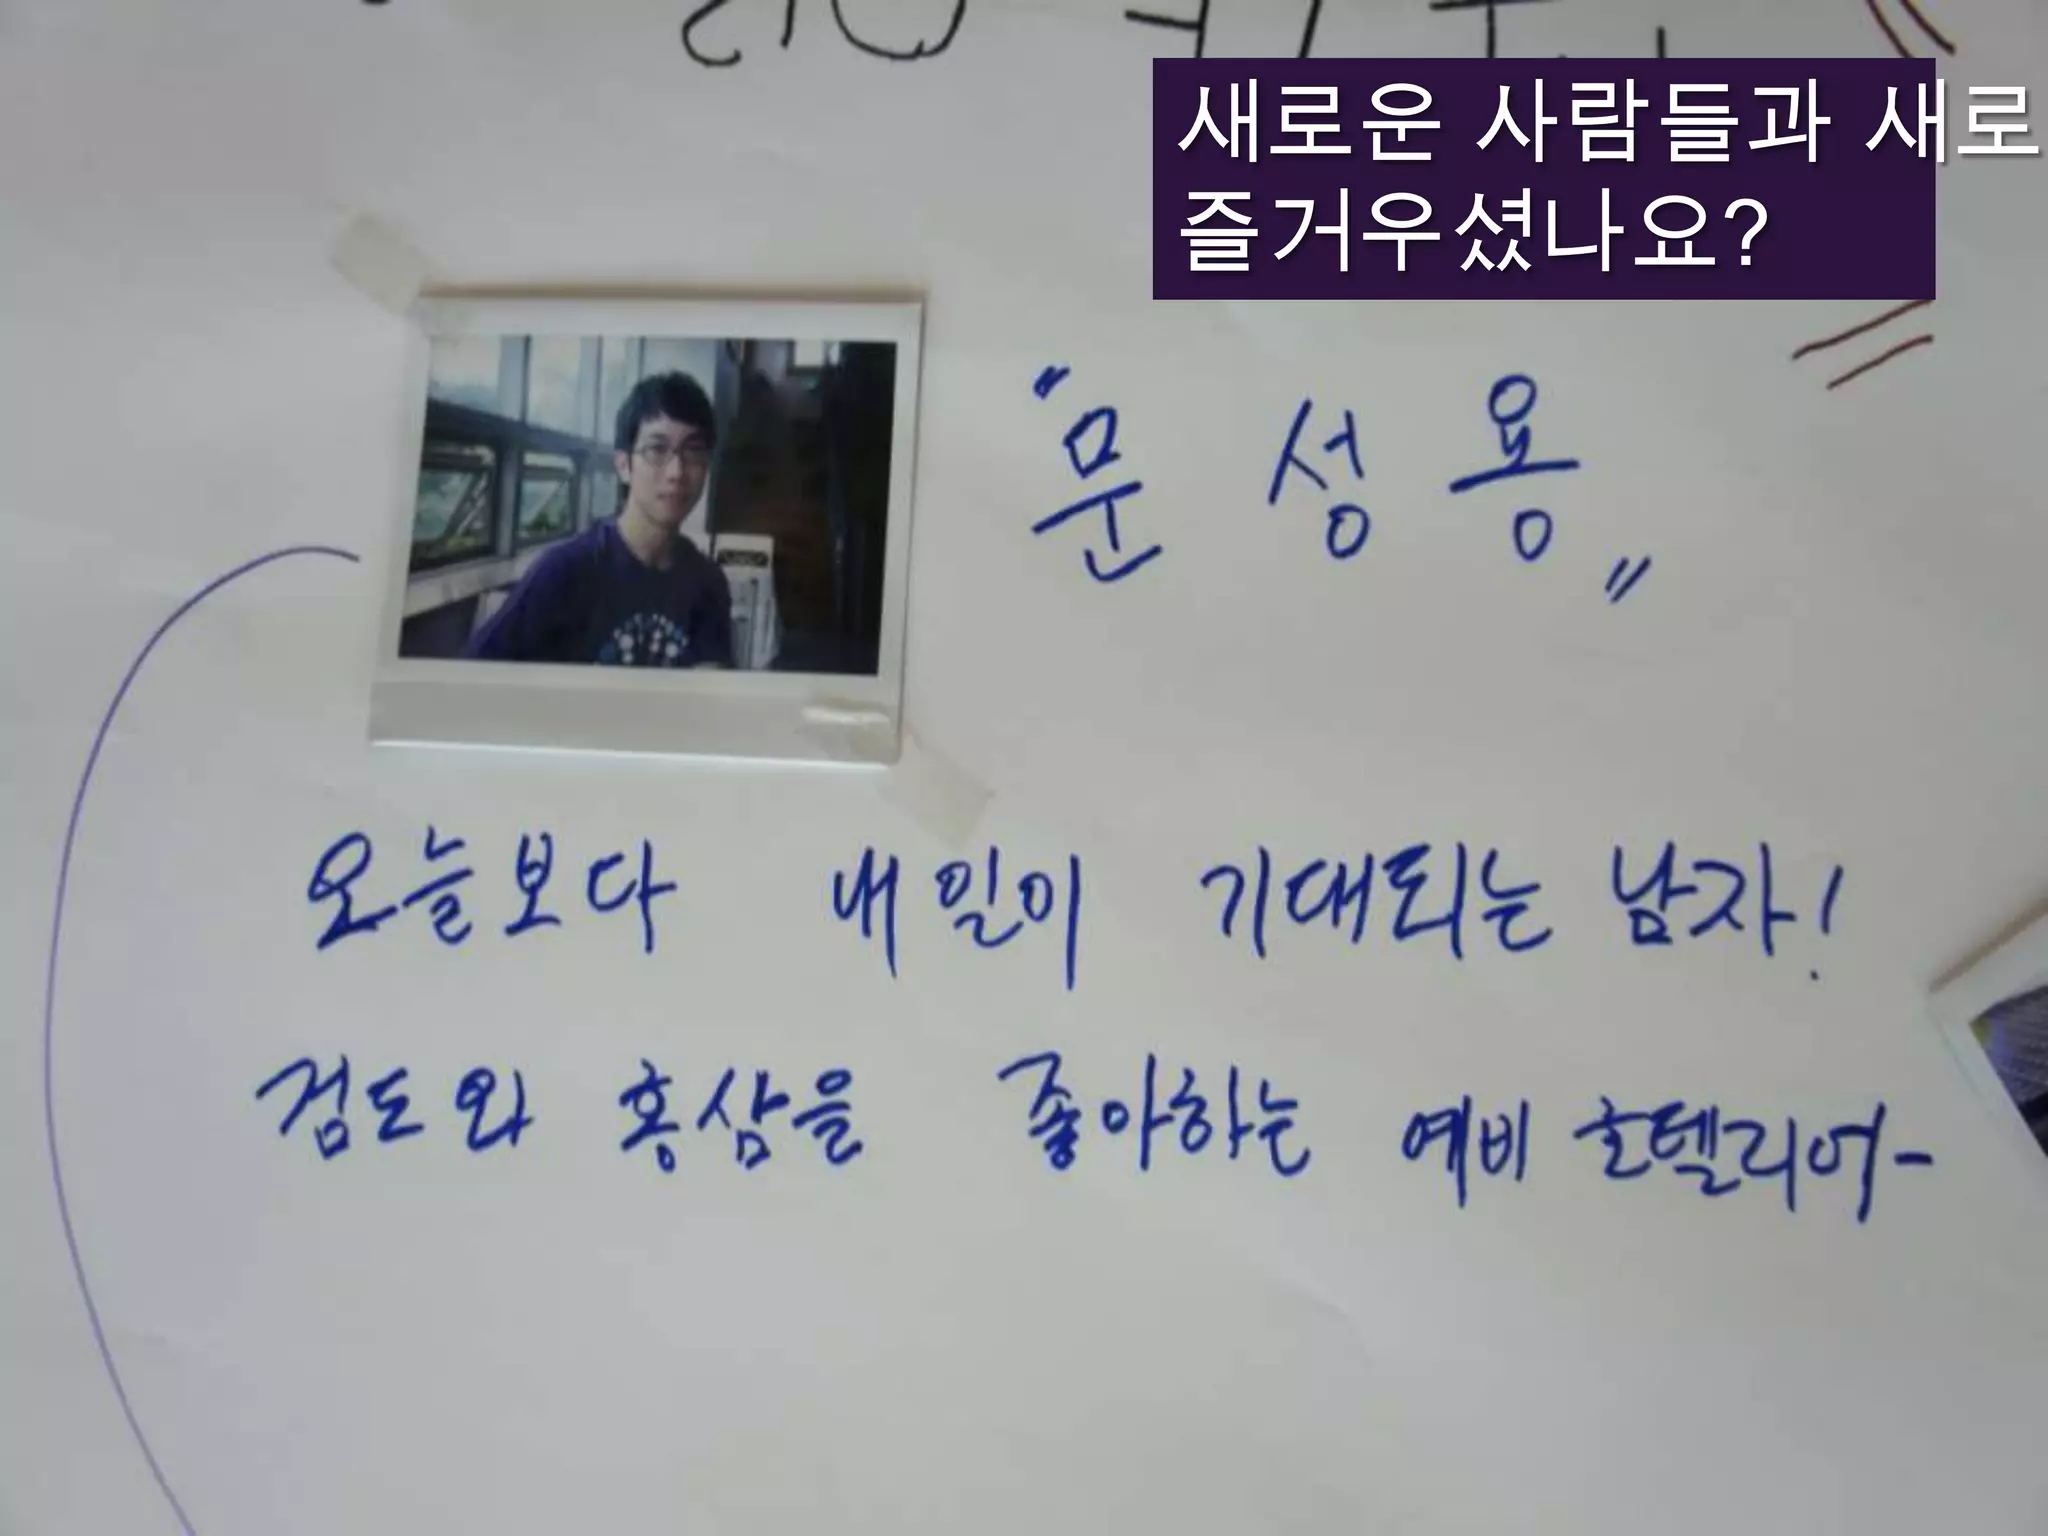 새로운 사람들과 새로
즐거우셨나요?
"문 성 용"
오늘보다 내일이 기대되는 남자!
검도와 홍삼을 좋아하는 예비 호텔리어-